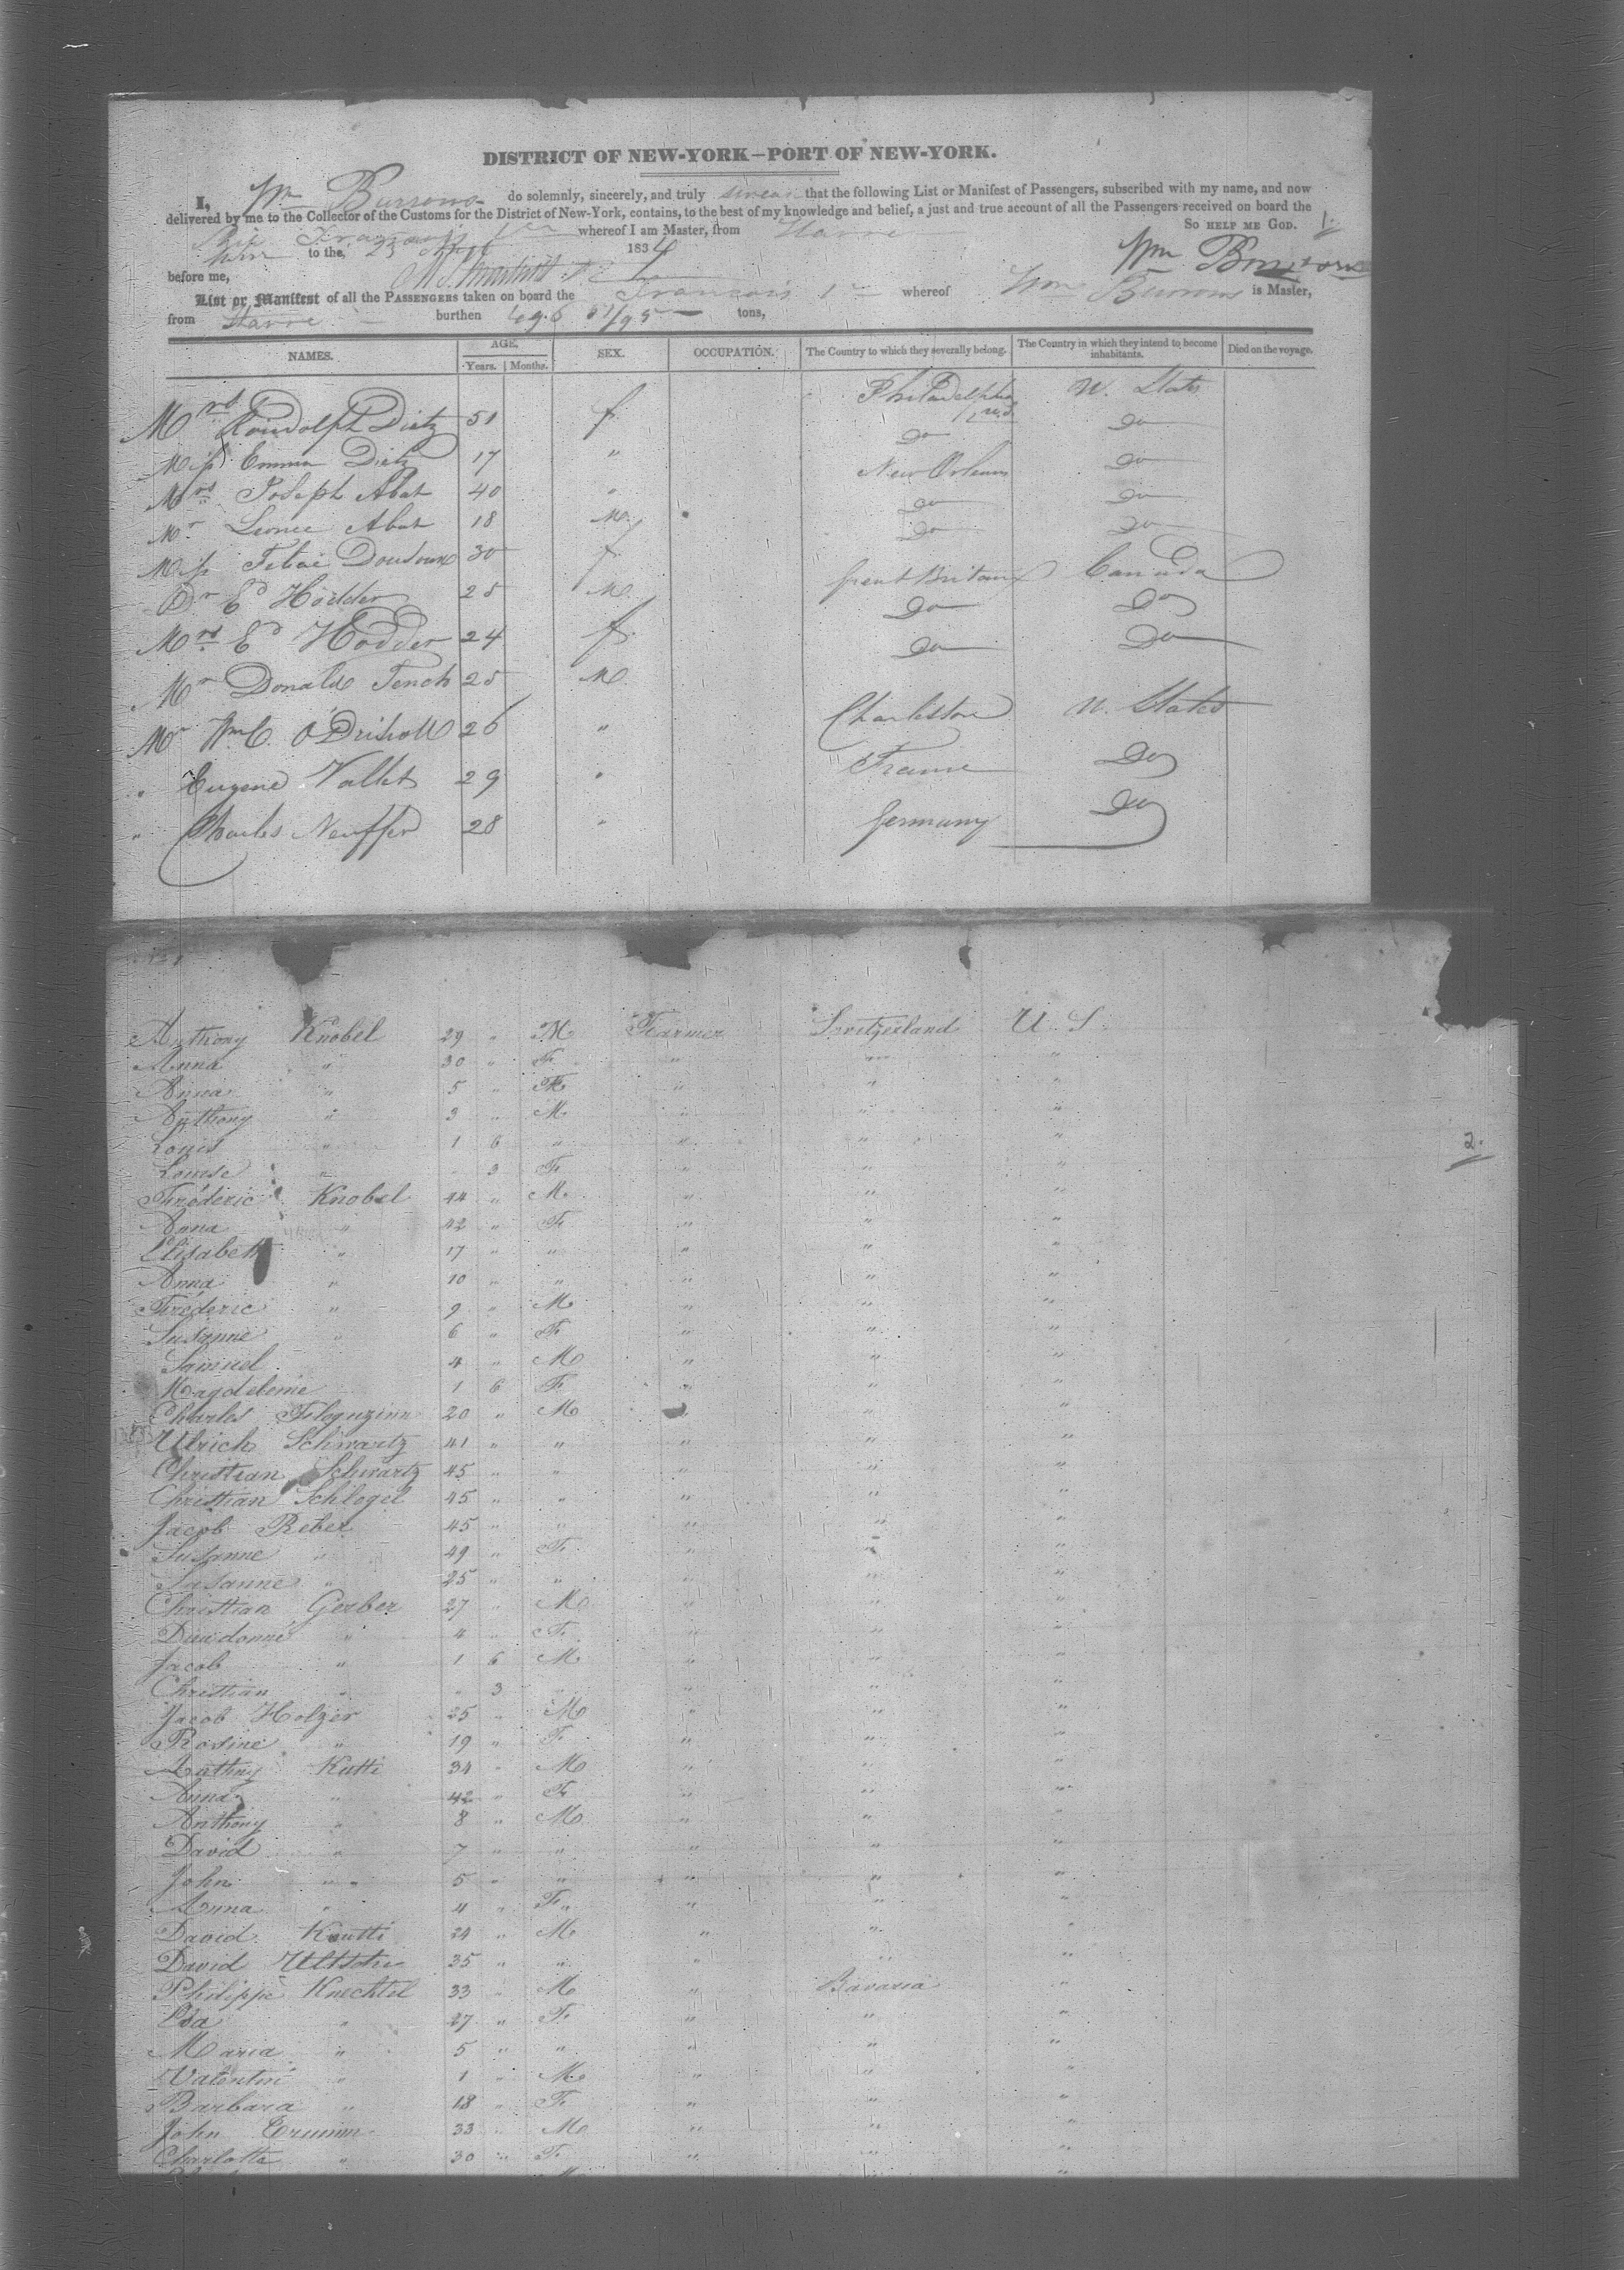 DISTRICT OF NEW-YORK—PORT OF NEW-YORK.
I, Wm Burrows do solemnly, sincerely, and truly swear that the following List or Manifest of Passengers, subscribed with my name, and now
delivered by me to the Collector of the Customs for the District of New-York, contains, to the best of my knowledge and belief, a just and true account of all the Passengers received on board the
Ship Francois 1er whereof I am Master, from Havre So HELP ME GOD. 1
to the, 23 1834
before me, Wm Burrows
List or Manifest of all the PASSENGERS taken on board the Francois 1er whereof Wm Burrows is Master,
from Havre burthen 496 tons,
NAMES. AGE. Years. Months. SEX. OCCUPATION. The Country to which they severally belong. The Country in which they intend to become inhabitants. Died on the voyage.
Mrs Randolph Dietz 51 f Philadelphia U. States
Miss Emma Dietz 17 " Do Do
Mrs Joseph Abat 40 " New Orleans Do
Mr Leonce Abat 18 M Do Do
Miss 30 f Do Do
Dr E Hodder 25 M Great Britain Canada
Mrs E Hodder 24 f Do Do
Mr Donald Tench 25 M Do Do
Mr Wm C. O'Driscoll 26 " Charleston U. States
" Eugene Vallet 29 " France Do
" Charles Neuffer 28 " Germany Do
Anthony Knobel 29 " M Farmer Switzerland U. S
Anna " 30 " F " " "
Anna " 5 " F " " "
Anthony " 3 " M " " "
Louis " 1 6 " " " "
Louise " 3 F " " "
Fréderic Knobel 44 " M " " "
Anna " 42 " F " " "
Elisabeth " 17 " " " " "
Anna " 10 " " " " "
Fréderic " 9 " M " " "
Susanne " 6 " F " " "
Samuel 4 " M " " "
Magdeleine 1 6 F " " "
Charles 20 " M " " "
Ulrich Schwartz 41 " " " " "
Christian Schwartz 45 " " " " "
Christian Schlogel 45 " " " " "
Jacob Reber 45 " " " " "
Susanne " 49 " F " " "
Susanne " 25 " " " " "
Christian Gerber 27 " M " " "
Dieudonné " 4 " F " " "
Jacob " 1 6 M " " "
Christian " " 3 " " " "
Jacob Holzer 25 " M " " "
Rosine " 19 " F " " "
Kutti 34 " M " " "
Anna " 42 " F " " "
Anthony " 8 " M " " "
David " 7 " " " " "
John " 5 " " " " "
Anna " 4 " F " " "
David Kutti 24 " M " " "
David 35 " " " " "
Philippe Knechtel 33 " M " Bavaria "
Eva " 27 " F " " "
Maria " 5 " " " " "
Valentin " 1 " M " " "
Barbara " 18 " F " " "
John 33 " M " " "
Charlotte " 30 " F " " "
2.